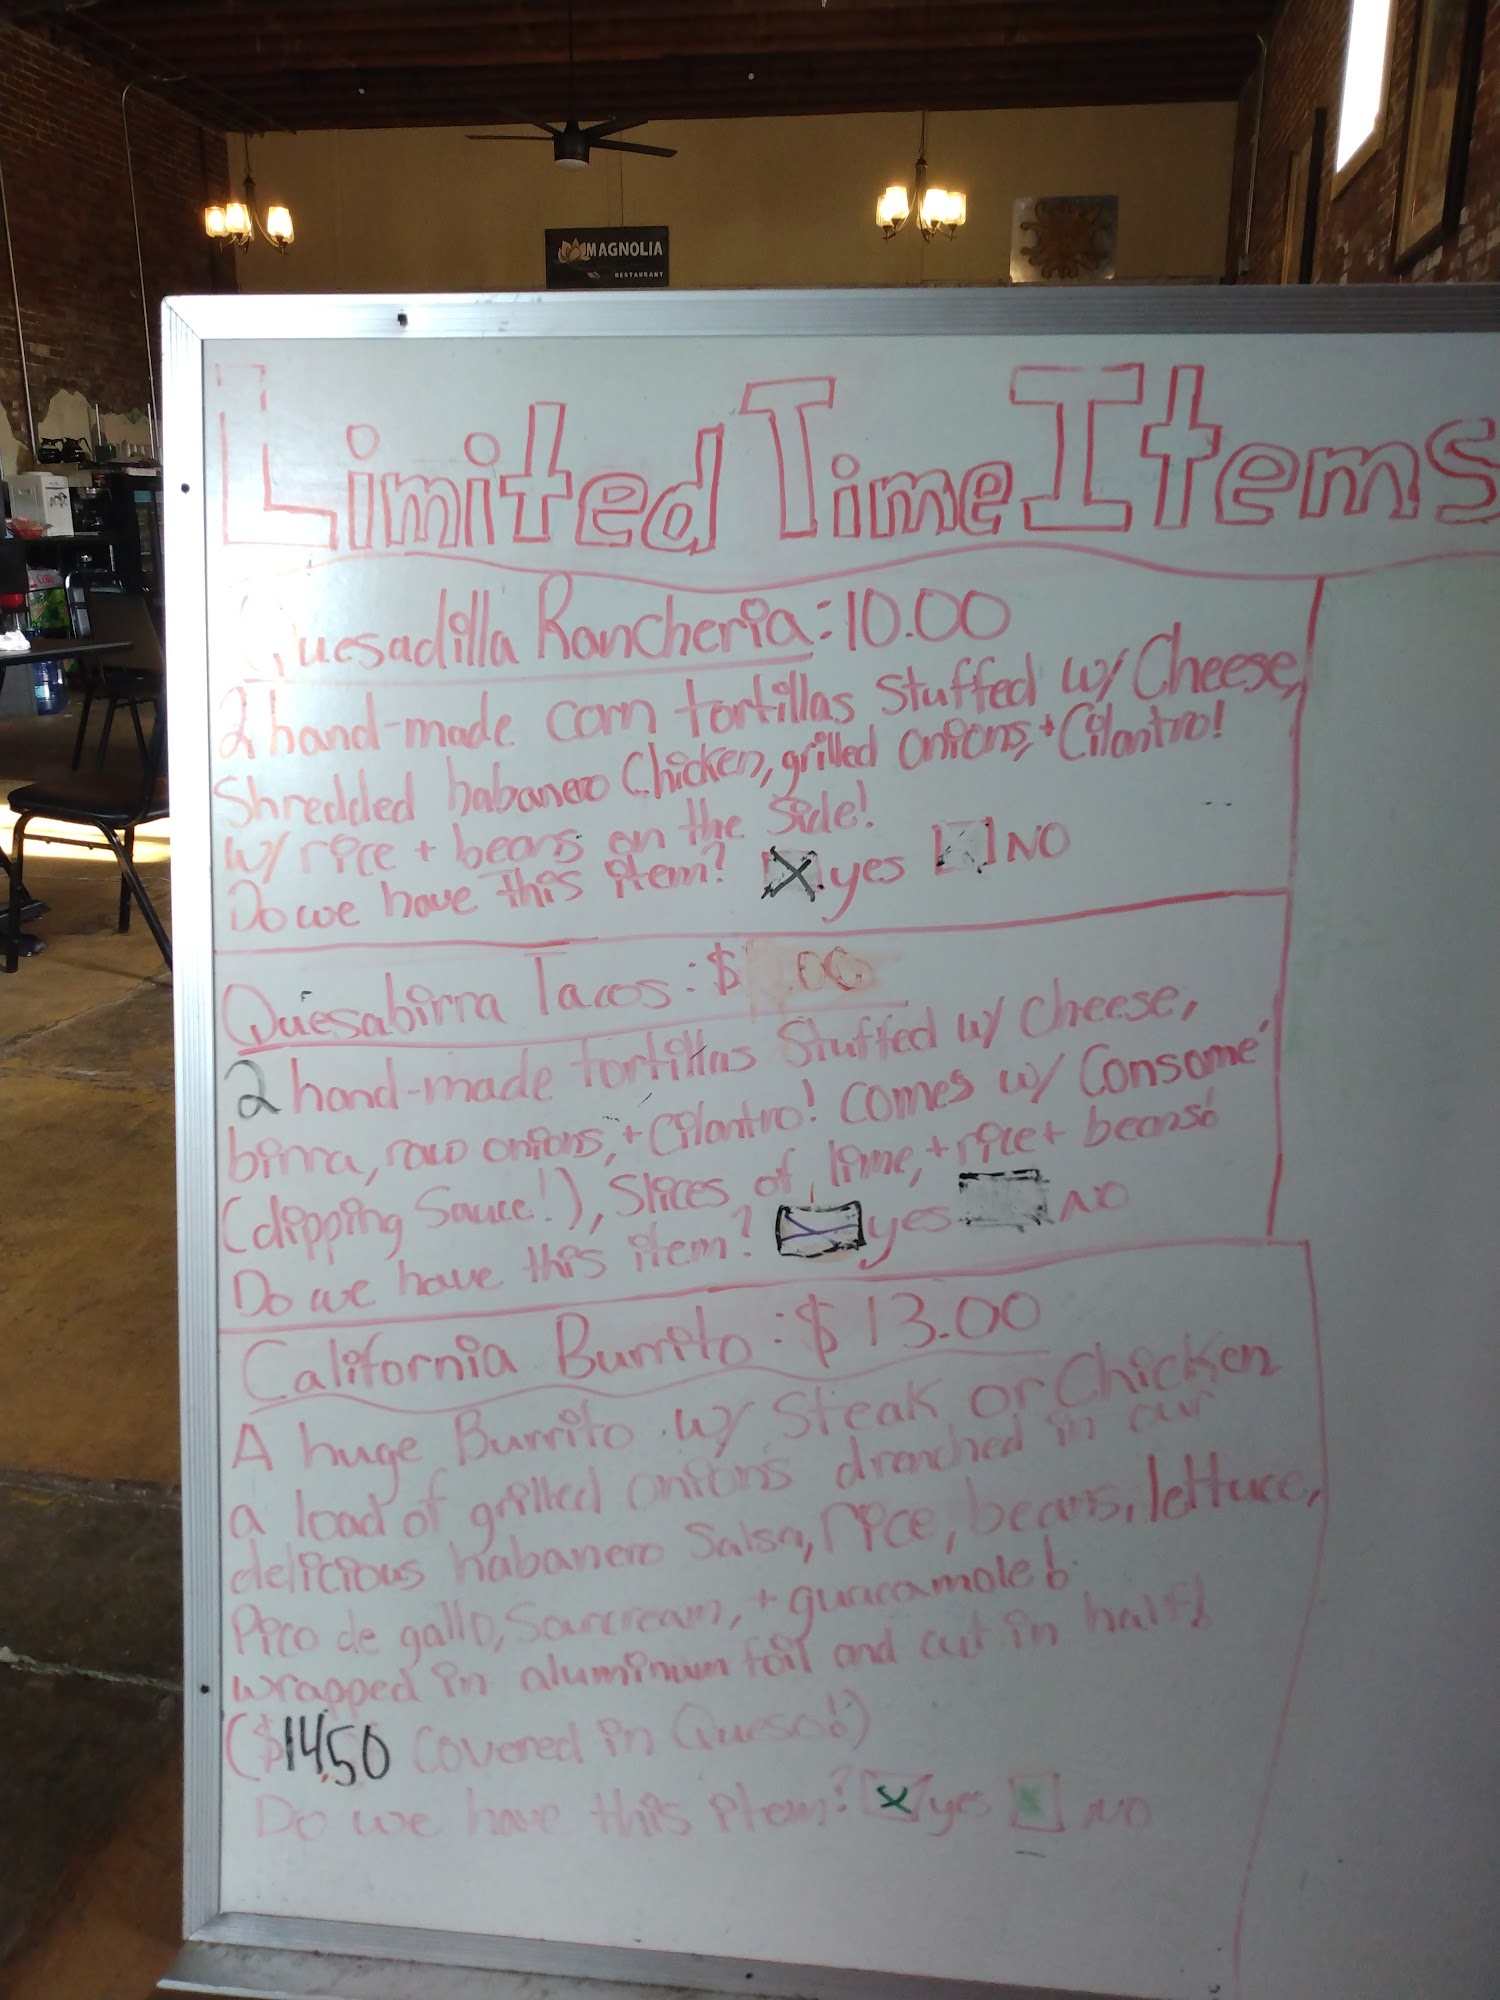 MAGNOLIA
RESTAURANT
Limited Time Items
Quesadilla Rancheria: 10.00
2 hand-made corn tortillas stuffed w/ Cheese,
Shredded habanero Chicken, grilled onions, + Cilantro!
w/ rice + beans on the side!
Do we have this item? yes NO
Quesabirra Tacos: $ .00
2 hand-made tortillas stuffed w/ cheese,
birra, raw onions, + Cilantro! Comes w/ Consomé
(dipping sauce!), slices of lime, + rice + beans!
Do we have this item? yes NO
California Burrito: $13.00
A huge Burrito w/ Steak or Chicken
a load of grilled onions drenched in our
delicious habanero Salsa, rice, beans, lettuce,
Pico de gallo, Sourcream, + guacamole!
wrapped in aluminum foil and cut in half!
($14.50 covered in Queso!)
Do we have this item? yes NO